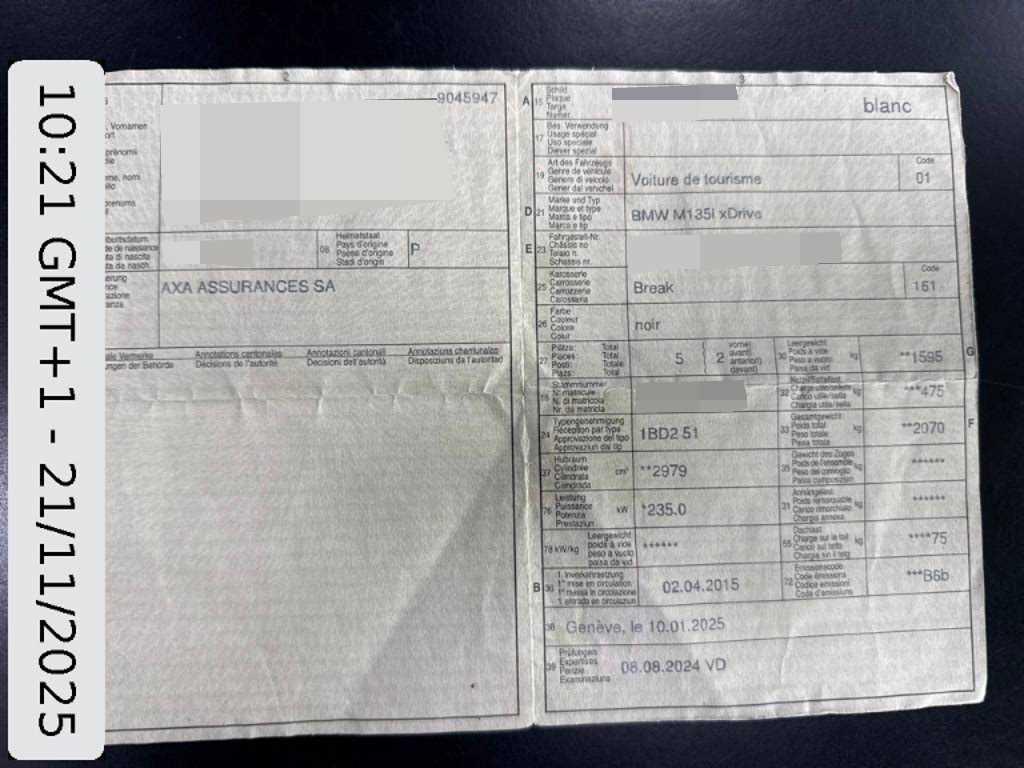 10:21 GMT+1 - 21/11/2025
2
9045947
, Vornamen
prénoms
Heimatstaat
08 Pays d'origine
Paese d'origine
Stadi d'origin
P
AXA ASSURANCES SA
Annotations cantonales
Décisions de l'autorité
Annotazioni cantonali
Decisioni dell'autorità
Annotaziuns chantunalas
Disposiziuns da l'autoritad
3
A 15 Schild
Plaque
Targa
Numer
blanc
17 Bes. Verwendung
Usage spécial
Uso speciale
Diever spezial
19 Art des Fahrzeugs
Genre de véhicule
Genere di veicolo
Gener dal vehichel
Voiture de tourisme
Code
01
D 21 Marke und Typ
Marque et type
Marca e tipo
Marca e tip
BMW M135i xDrive
E 23 Fahrgestell-Nr.
Châssis no
Telaio n.
Schassis nr.
25 Karosserie
Carrosserie
Carrozzeria
Carossaria
Break
Code
161
26 Farbe
Couleur
Colore
Colur
noir
27 Plätze: Total
Places: Total
Posti: Totale
Plazs: Total
5
( 2
vorne)
avant)
anteriori)
davant)
30 Leergewicht
Poids à vide
Peso a vuoto
Paisa da vid
kg
**1595
G
18 Stammnummer
N° matricule
N. di matricola
Nr. da matricla
32 Nutz-/Sattellast
Charge utile/sellette
Carico utile/sella
Chargia utila/sella
kg
***475
24 Typengenehmigung
Réception par type
Approvazione del tipo
Approvaziun dal tip
1BD2 51
33 Gesamtgewicht
Poids total
Peso totale
Paisa totala
kg
**2070
F
37 Hubraum
Cylindrée
Cilindrata
Cilindrada
cm³
**2979
35 Gewicht des Zuges
Poids de l'ensemble
Peso del convoglio
Paisa cumposiziun
kg
******
76 Leistung
Puissance
Potenza
Prestaziun
kW
*235.0
31 Anhängelast
Poids remorquable
Carico rimorchiato
Chargia annexa
kg
******
78 kW/kg Leergewicht
poids à vide
peso a vuoto
paisa da vid
******
55 Dachlast
Charge sur le toit
Carico sul tetto
Chargia sin il tetg
kg
****75
B 36 1. Inverkehrsetzung
1re mise en circulation
1a messa in circolazione
1. entrada en circulaziun
02.04.2015
72 Emissionscode
Code émissions
Codice emissioni
Code d'emissiuns
***B6b
38 Genève, le 10.01.2025
39 Prüfungen
Expertises
Perizie
Examinaziuns
08.08.2024 VD